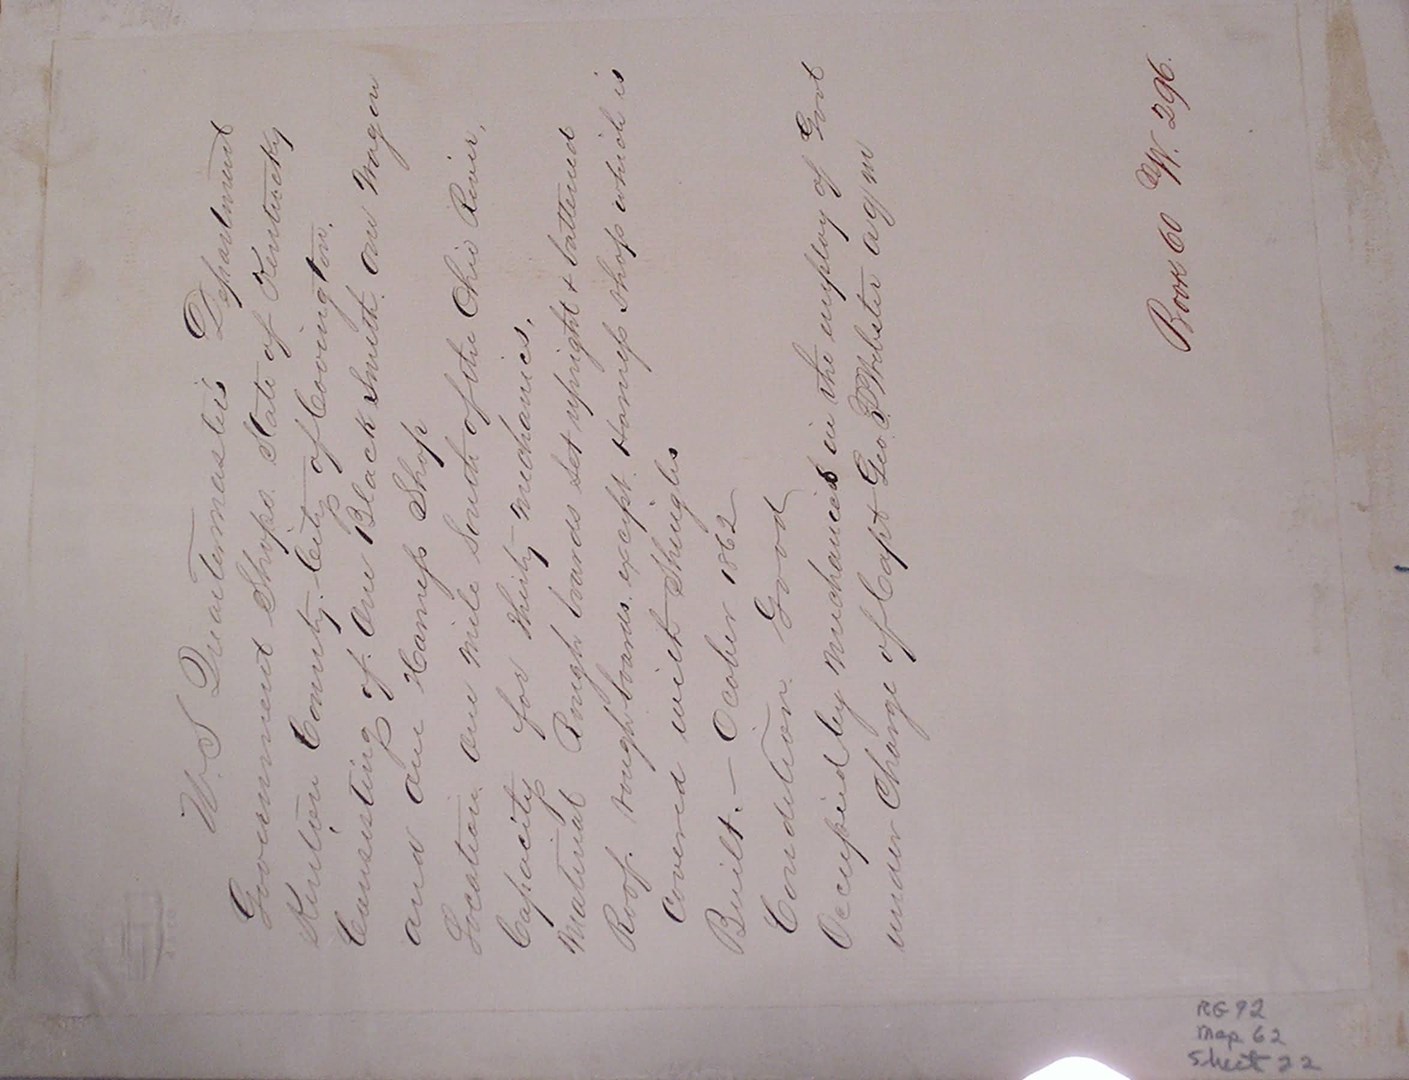 U.S Quartermaster's Department
Government Shops. State of Kentucky
Kenton County. City of Covington.
Consisting of. One Black Smith. one Wagon
and one Harness Shop
Location one Mile South of the Ohio River,
Capacity for thirty mechanics,
Material Rough boards set upright & battened
Roof. rough boards. except Harness Shop which is
Covered with Shingles
Built. — Ocober 1862
Condition Good
Occupied by Mechanics in the employ of Govt
under Charge of Capt Geo. Webster aqm
Book 60 W. 296.
RG 92
Map 62
Sheet 22